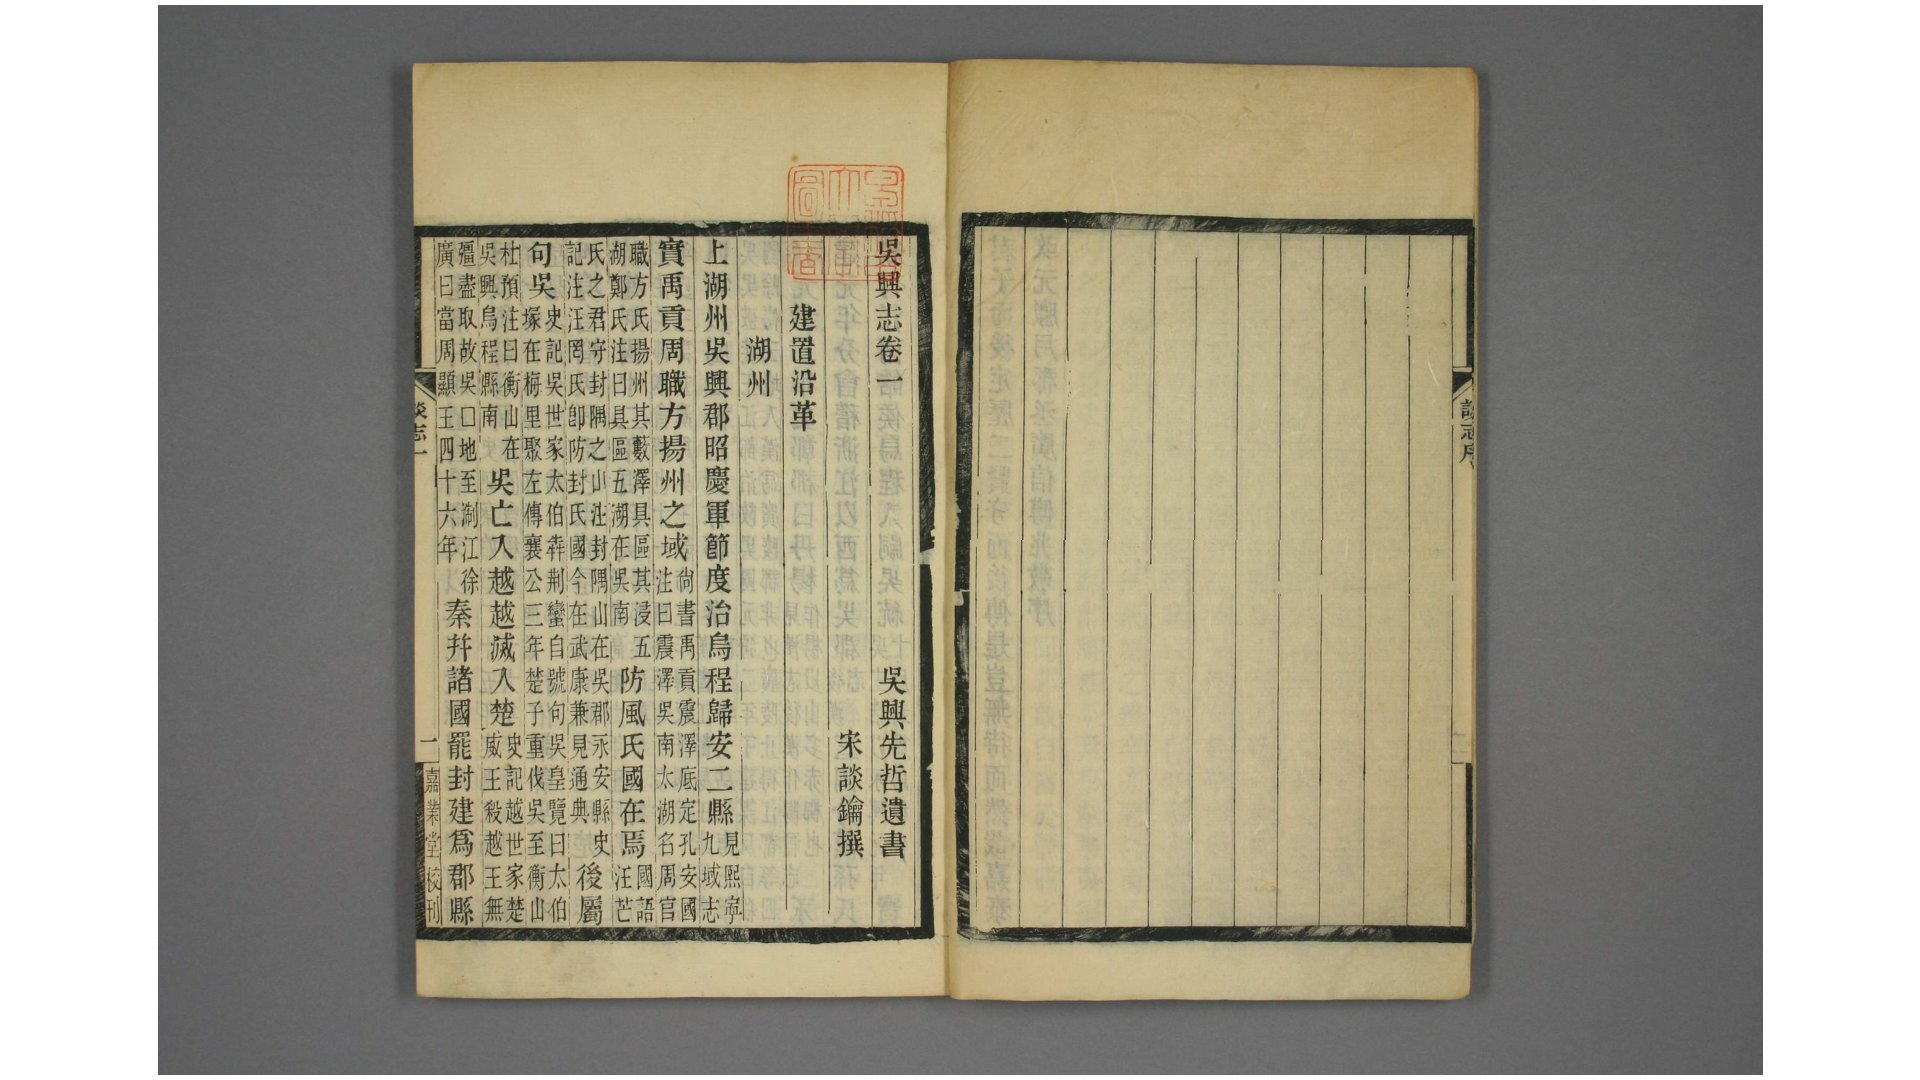 談志序
吳興志卷一 吳興先哲遺書
宋談鑰撰
建置沿革
湖州
上湖州吳興郡昭慶軍節度治烏程歸安二縣見熙寧九域志
實禹貢周職方揚州之域尙書禹貢震澤底定孔安國注曰震澤吳南太湖名周官
職方氏揚州其藪澤具區其浸五湖鄭氏注曰具區五湖在吳南防風氏國在焉國語汪芒
氏之君守封隅之山注封隅山在吳郡永安縣史記注汪罔氏卽防封氏國今在武康兼見通典後屬
句吳史記吳世家太伯犇荆蠻自號句吳皇覽曰太伯塚在梅里聚左傳襄公三年楚子重伐吳至衡山
杜預注曰衡山在吳興烏程縣南吳亡入越越滅入楚史記越世家楚威王殺越王無
彊盡取故吳口地至淛江徐廣曰當周顯王四十六年秦幷諸國罷封建爲郡縣
談志一 一 嘉業堂校刊